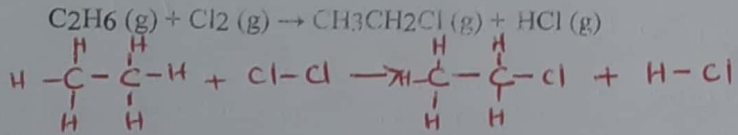 C2H6 (g) + Cl2 (g) → CH3CH2Cl (g) + HCl (g)
H H H H
H - C - C - H + Cl - Cl → H - C - C - Cl + H - Cl
H H H H